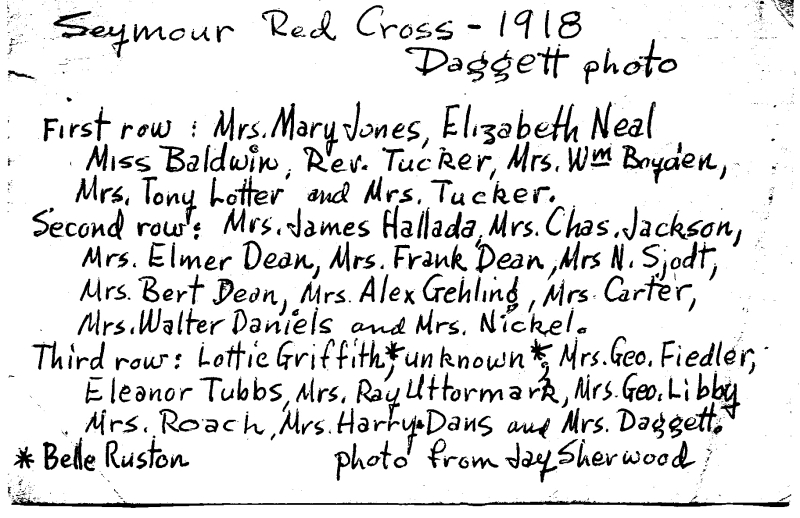 Seymour Red Cross - 1918
Daggett photo
First row : Mrs. Mary Jones, Elizabeth Neal
Miss Baldwin, Rev. Tucker, Mrs. Wm Boyden,
Mrs. Tony Lotter and Mrs. Tucker.
Second row: Mrs. James Hallada, Mrs. Chas. Jackson,
Mrs. Elmer Dean, Mrs. Frank Dean, Mrs N. Sjodt,
Mrs. Bert Dean, Mrs. Alex Gehling, Mrs. Carter,
Mrs. Walter Daniels and Mrs. Nickel.
Third row: Lottie Griffith,* unknown*, Mrs. Geo. Fiedler,
Eleanor Tubbs, Mrs. Ray Uttormark, Mrs. Geo. Libby
Mrs. Roach, Mrs. Harry Dans and Mrs. Daggett.
* Belle Ruston photo from Jay Sherwood